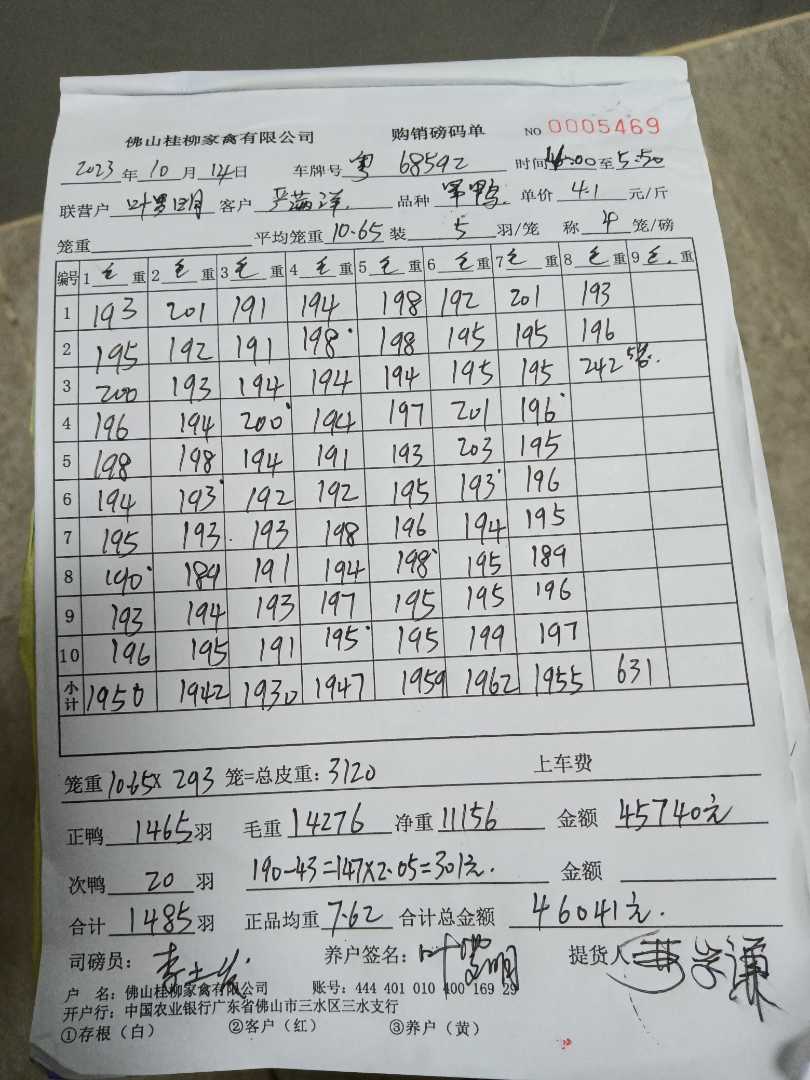 佛山桂柳家禽有限公司 购销磅码单 NO 0005469
2023年10月14日 车牌号 粤 68592 时间16:00至5:50
联营户 叶男明 客户 严满洋. 品种 单价 4.1 元/斤
笼重 平均笼重10.65装 5 羽/笼 称 4 笼/磅
编号 1毛重 2毛重 3毛重 4毛重 5毛重 6毛重 7毛重 8毛重 9毛.重
1 193 201 191 194 198 192 201 193
2 195 192 191 198 198 195 195 196
3 200 193 194 194 194 195 195 242 5笼.
4 196 194 200 194 197 201 196
5 198 198 194 191 193 203 195
6 194 193 192 192 195 193 196
7 195 193 193 198 196 194 195
8 190 189 191 194 198 195 189
9 193 194 193 197 195 195 196
10 196 195 191 195 195 199 197
小计 1950 1942 1930 1947 1959 1962 1955 631
笼重10.65×293笼=总皮重:3120 上车费
正鸭 1465羽 毛重14276 净重11156 金额 45740元
次鸭 20 羽 190-43=147×2.05=301元. 金额
合计 1485羽 正品均重7.62 合计总金额 46041元.
司磅员: 李 养户签名: 叶 明 提货人
户 名:佛山桂柳家禽有限公司 账号:444 401 010 400 169 29
开户行:中国农业银行广东省佛山市三水区三水支行
①存根(白) ②客户(红) ③养户(黄)